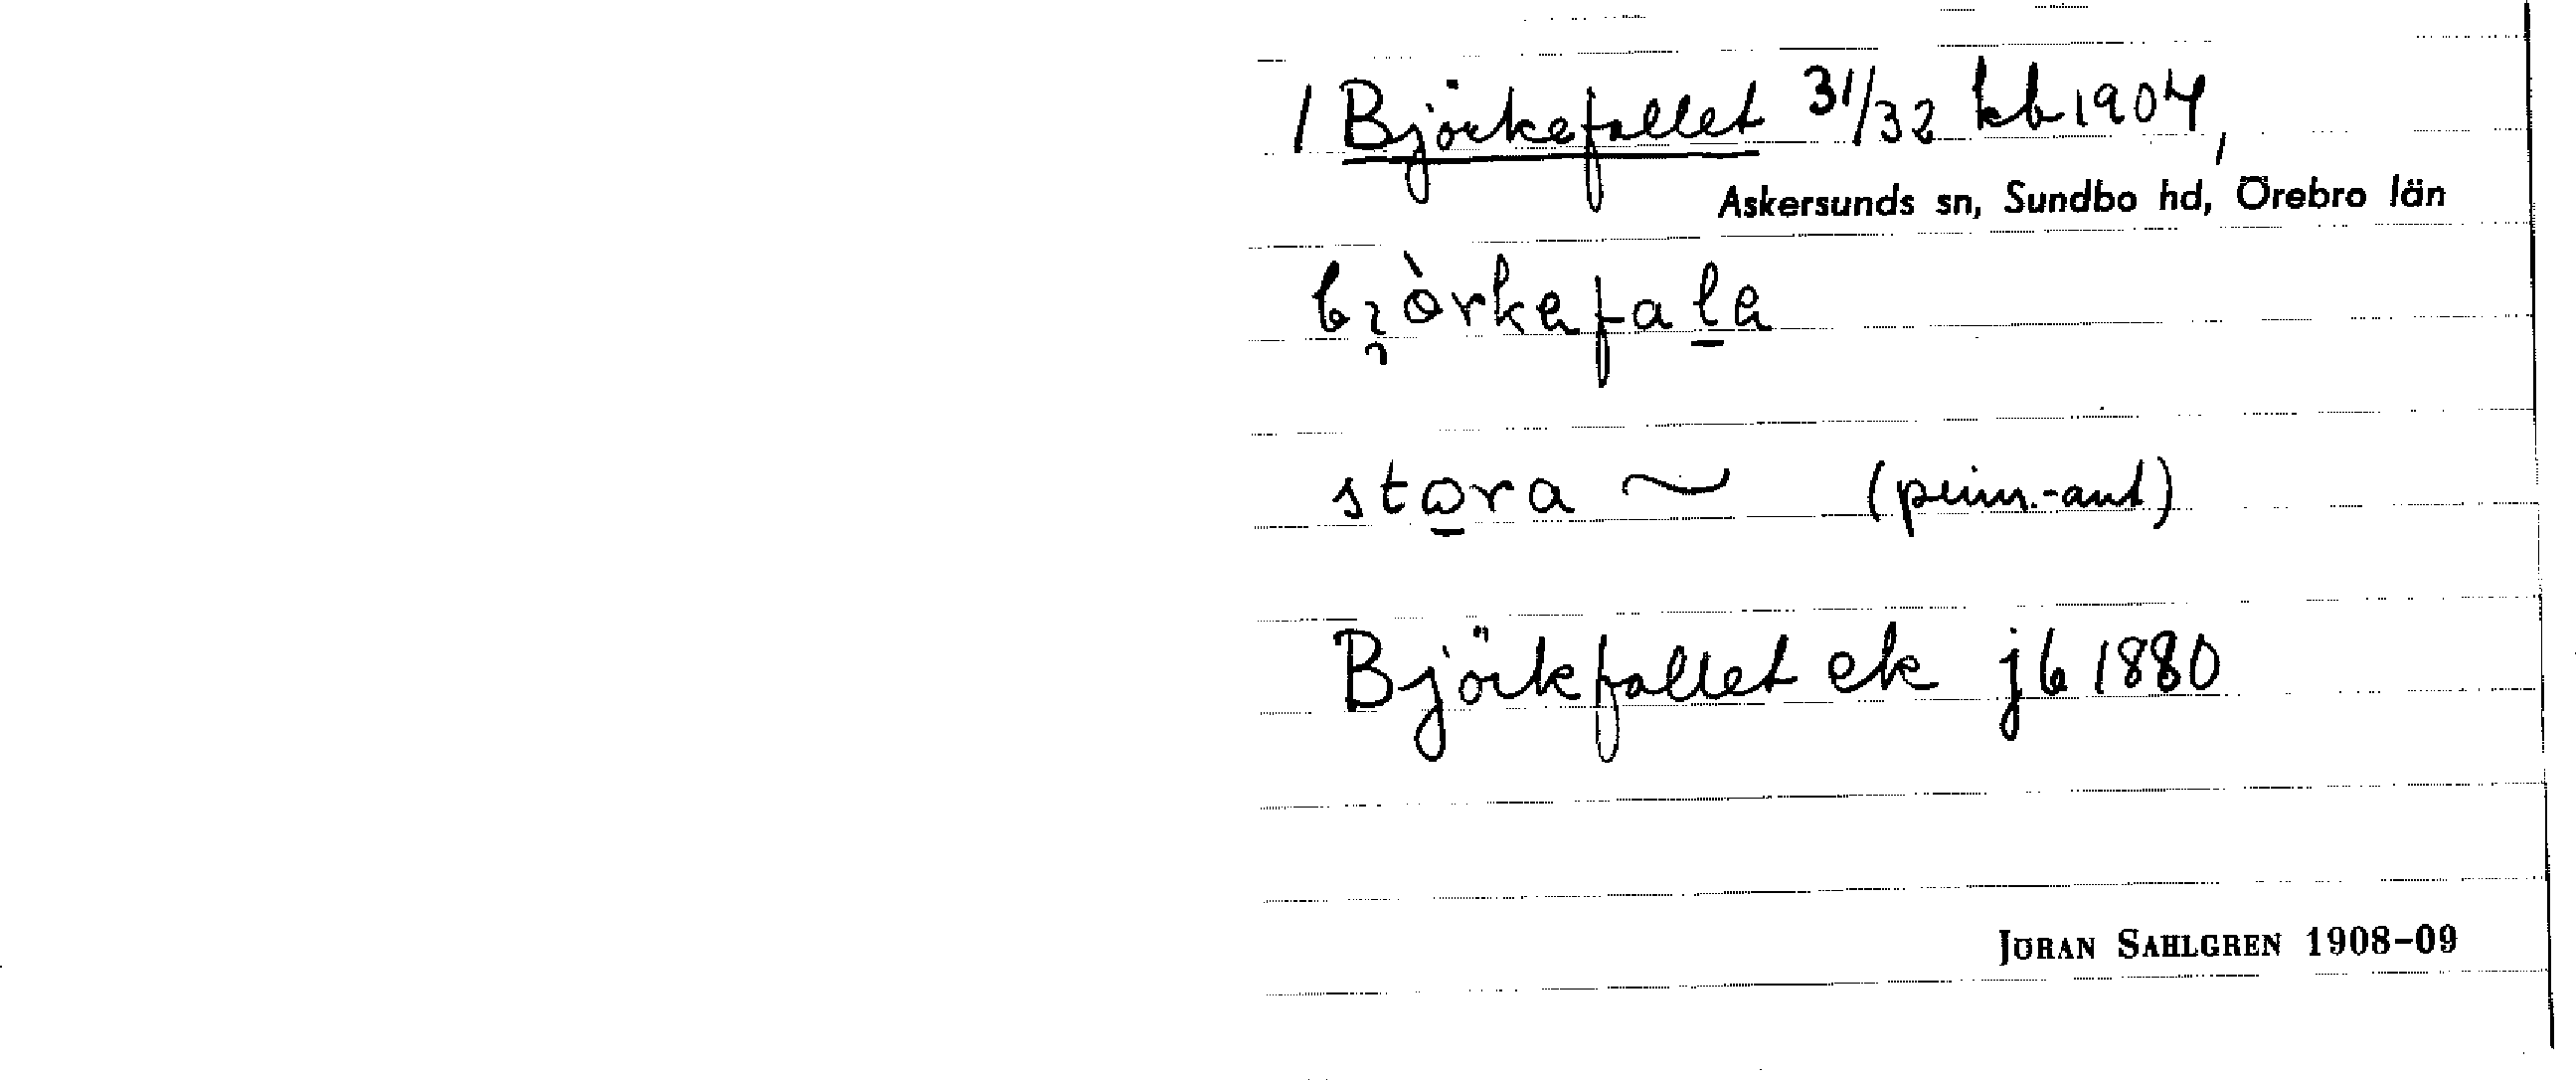 / Björkefallet 31/32 kb 1904,
Askersunds sn, Sundbo hd, Örebro län
stora ~
Björkfallet ek jb 1880
JÖRAN SAHLGREN 1908–09